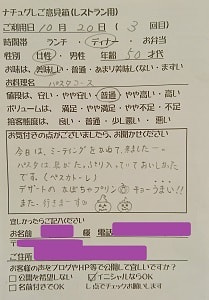 ナチュグレご意見箱(レストラン用)
ご利用日 10月20日(3回目)
時間帯 ランチ・ディナー・お弁当
性別 女性・男性 年齢 50才代
お味は、美味しい・普通・あまり美味しくない・まずい
お料理名 パスタコース
値段は、安い・やや安い・普通・やや高い・高い
ボリュームは、満足・やや満足・やや不足・不足
接客態度は、良い・普通・少し悪い・悪い
お気付きの点がございましたら、お聞かせください
今日は、ミーティングをかねて、来ましたー。
パスタは具がたっぷり入っていておいしかった
です。(ペペストーレ)
デザートのかぼちゃプリン チョーうまい!!
また、行きまーす
宜しかったらご記入ください
お名前 様 電話
〒
ご住所
お客様の声をブログやHP等で公開して宜しいですか?
公開を希望しない イニシャルならOK
名前付きでOK し点でチェックお願いします